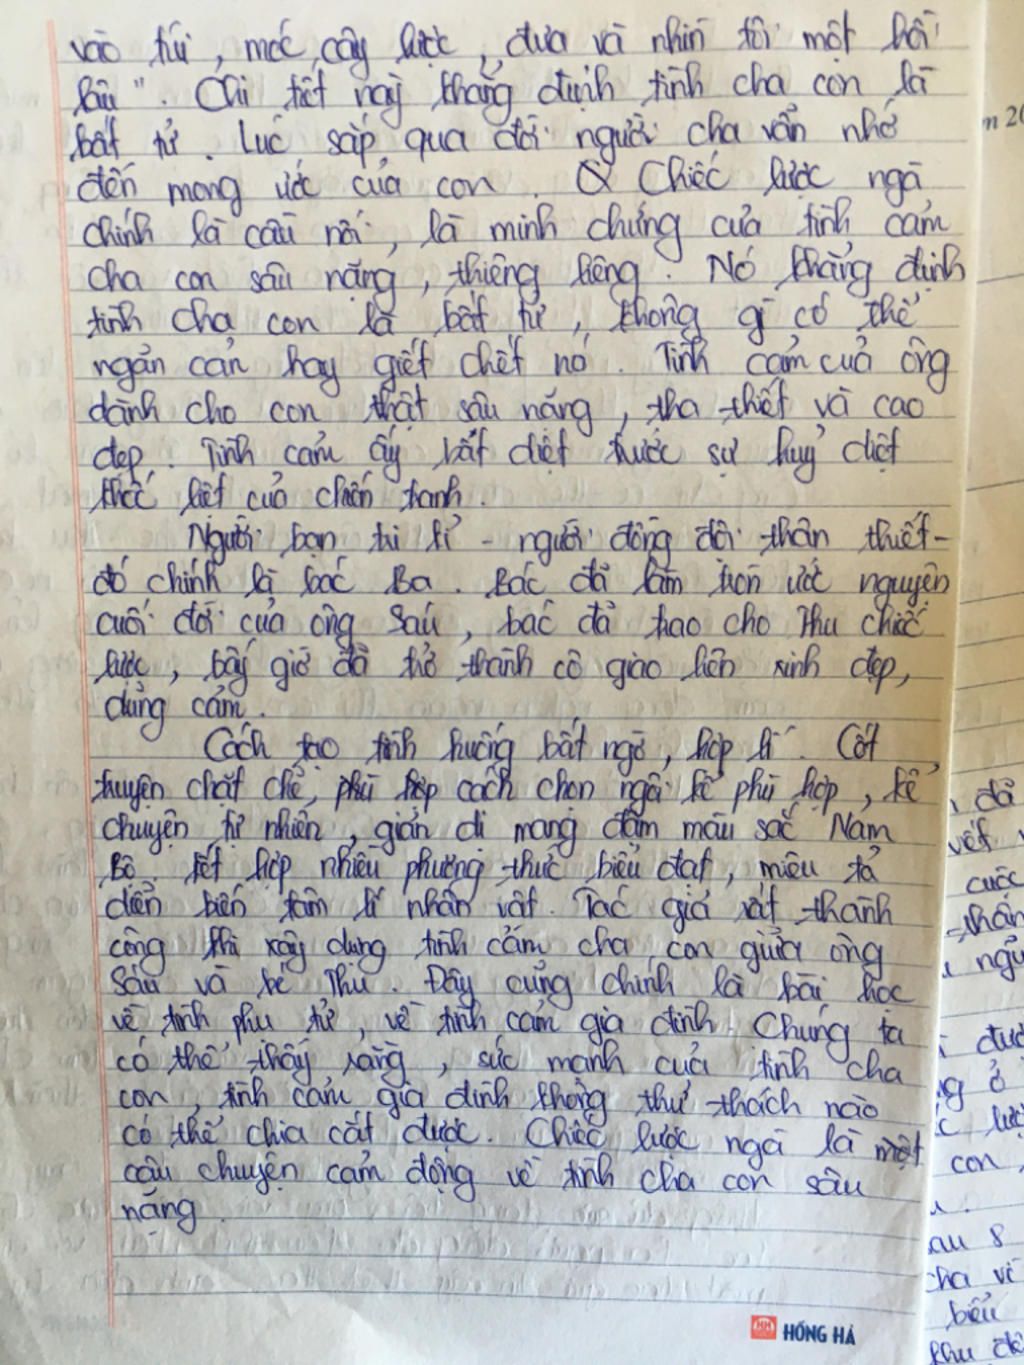 vào túi, móc cây lược, đưa và nhìn tôi một hồi
lâu". Chi tiết này khẳng định tình cha con là
bất tử. Lúc sắp qua đời người cha vẫn nhớ
đến mong ước của con. Chiếc lược ngà
chính là cầu nối, là minh chứng của tình cảm
cha con sâu nặng, thiêng liêng. Nó khẳng định
tình cha con là bất tử, không gì có thể
ngăn cản hay giết chết nó. Tình cảm của ông
dành cho con thật sâu nặng, tha thiết và cao
đẹp. Tình cảm ấy bất diệt trước sự huỷ diệt
khốc liệt của chiến tranh.
Người bạn tri kỉ - người đồng đội thân thiết -
đó chính là bác Ba. Bác đã làm tròn ước nguyện
cuối đời của ông Sáu, bác đã trao cho Thu chiếc
lược, bấy giờ đã trở thành cô giao liên xinh đẹp,
dũng cảm.
Cách tạo tình huống bất ngờ, hợp lí. Cốt
truyện chặt chẽ, phù hợp cách chọn ngôi kể phù hợp, kể
chuyện tự nhiên, giản dị mang đậm màu sắc Nam
Bộ. Kết hợp nhiều phương thức biểu đạt, miêu tả
diễn biến tâm lí nhân vật. Tác giả rất thành
công khi xây dựng tình cảm cha con giữa ông
Sáu và bé Thu. Đây cũng chính là bài học
về tình phụ tử, về tình cảm gia đình. Chúng ta
có thể thấy rằng, sức mạnh của tình cha
con, tình cảm gia đình không thử thách nào
có thể chia cắt được. Chiếc lược ngà là một
câu chuyện cảm động về tình cha con sâu
nặng.
HỒNG HÀ
đã
vết
cuộc
thần
ở
con,
sau 8
cha về
biểu